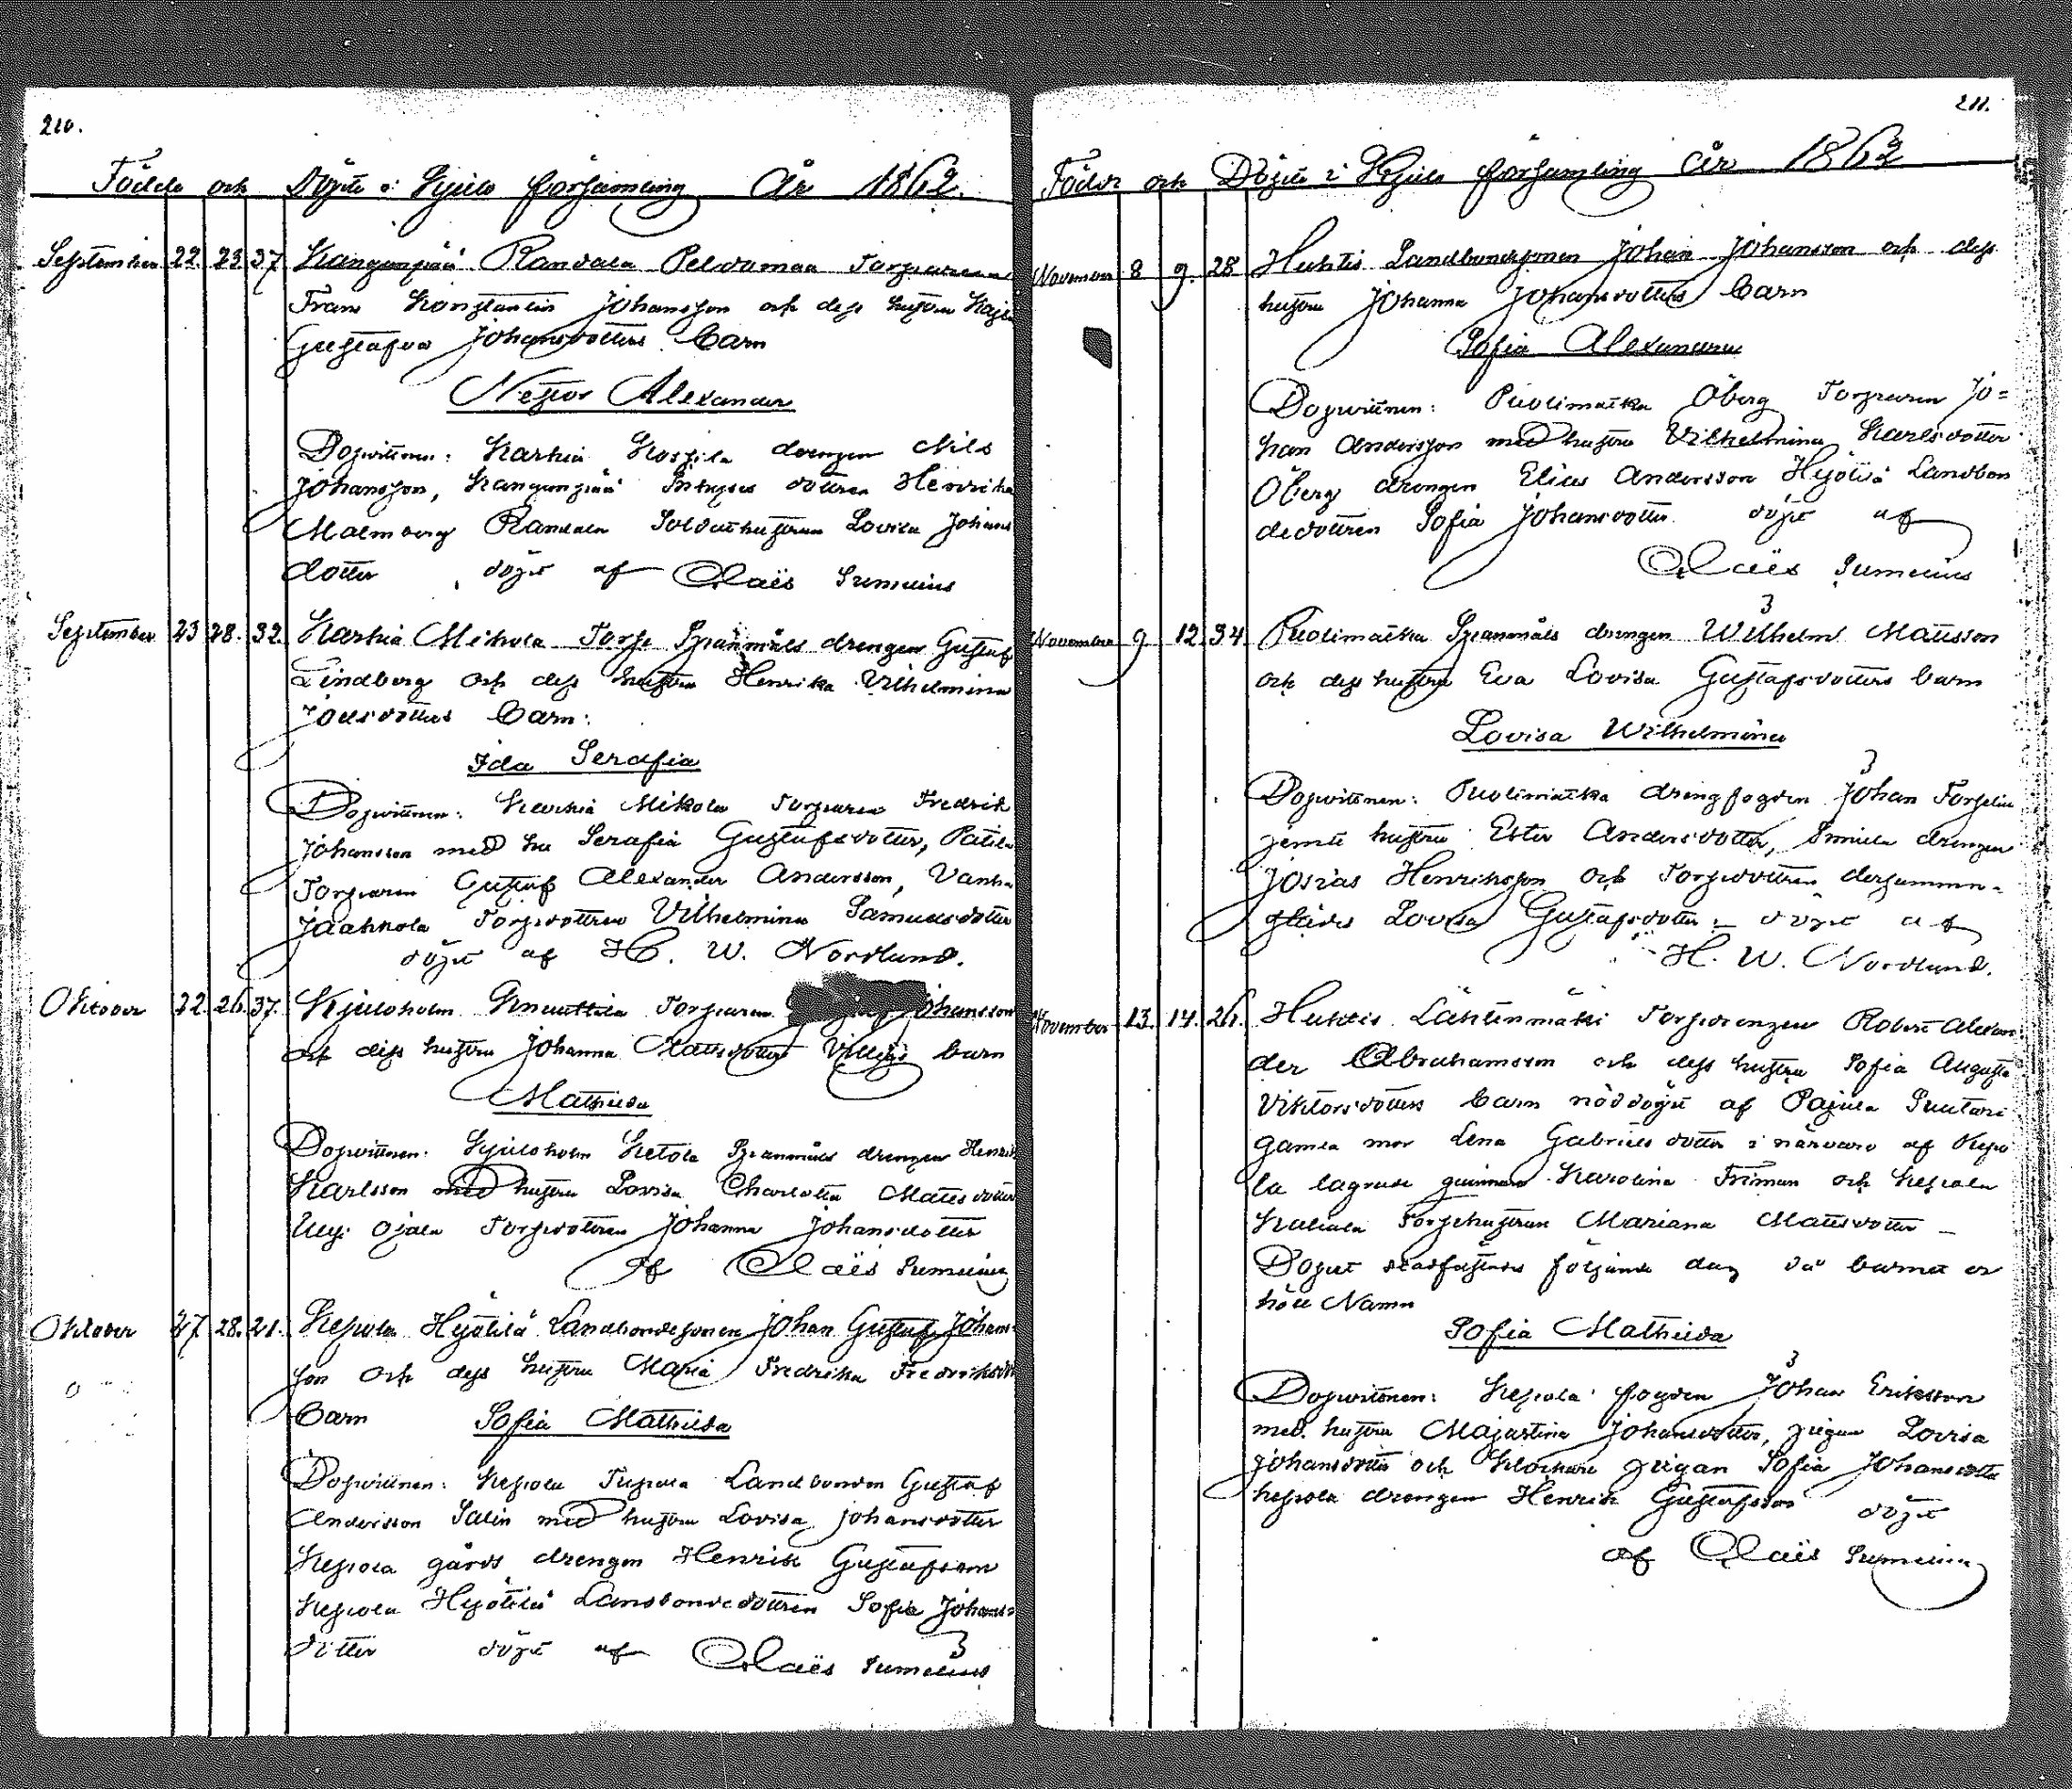 210.
Födde och Döpte i Kjulo församling År 1862.
September 22. 23. 37 Kanganpää Randala Peldomaa Torparen
Frans Konstantin Johansson och dess hustru Kajsa
Gustafva Johansdotters barn
Nestor Alexander
Dopvittnen: Karhia Kospila drengen Nils
Johansson, Kanganpää dottren Henrika
Malmberg Randala Soldathustrun Lovisa Johans
dotter döpt af Claës Sumelius
September 23 28. 32. Karhia Mikola Torp Spanmåls drengen Gustaf
Lindberg och dess hustru Henrika Vilhelmina
Joelsdotters barn:
Ida Serafia
Dopvittnen: Karhia Mikola Torparen Fredrik
Johansson med hu Serafia Gustafsdotter, Pätilä
Torparen Gustaf Alexander Andersson, Vanha
Jaakkola Torpdottren Vilhelmina Samuelsdotter
döpt af H. W. Nordlund.
Oktober 22. 26. 37. Kjuloholm Torparen Johansson
och dess hustru Johanna Mattsdotters Villgs barn
Mathilda
Dopvittnen: Kjuloholm Ketola Spanmåls drengen Henrik
Karlsson med hustru Lovisa Charlotta Mattsdotter
Uusi Ojala Torpdottren Johanna Johansdotter
af Claës Sumelius
Oktober 27. 28. 21. Kepola Hyötilä Landbondesonen Johan Gustaf Johans
son och dess hustru Maria Fredrika Fredriksdr
barn Sofia Mathilda
Dopvittnen: Kepola Tupala Landbonden Gustaf
Andersson Salin med hustru Lovisa Johansdotter
Kepola gårds drengen Henrik Gustafsson
Kepola Hyötilä Landbondedottren Sofia Johans
dotter döpt af Claës Sumelius
211.
Födde och Döpte i Kjulo församling År 1862
November 8 9. 28 Huhtis Landbondesonen Johan Johansson och dess
hustru Johanna Johansdotters barn
Sofia Alexandra
Dopvittnen: Puolimatka Öberg Torparen Jo=
han Andersson med hustru Vilhelmina Karlsdotter
Öberg drengen Elias Andersson Hyötilä Landbon
dedottren Sofia Johansdotter döpt af
Claës Sumelius
November 9 12. 34. Puolimatka Spanmåls drengen Wilhelm Mattsson
och dess hustru Eva Lovisa Gustafsdotters barn
Lovisa Wilhelmina
Dopvittnen: Puolimatka drengfogden Johan Forselin
jemte hustru Ester Andersdotter, drengen
Josias Henriksson och Torpdottren dersamma-
städes Lovisa Gustafsdotter: döpt af
H. W. Nordlund.
November 13. 14. 26. Huhtis Lähtenmäki Torpdrengen Robert Alexan
der Abrahamsson och dess hustru Sofia Augusta
Viktorsdotters barn nöddöpt af Pajula Suutari
gamla mor Lena Gabrielsdotter i närvaro af Kepo
la lagrade quinnan Karolina Friman och Kepola
Torphustrun Mariana Mattsdotter -
Dopet stadfästades följande dag då barnet er
höll Namn
Sofia Mathilda
Dopvittnen: Kepola fogden Johan Eriksson
med hustru Majastina Johansdotter, pigan Lovisa
Johansdotter och Klockare pigan Sofia Johansdotter
Kepola drengen Henrik Gustafsson döpt
af Claës Sumelius